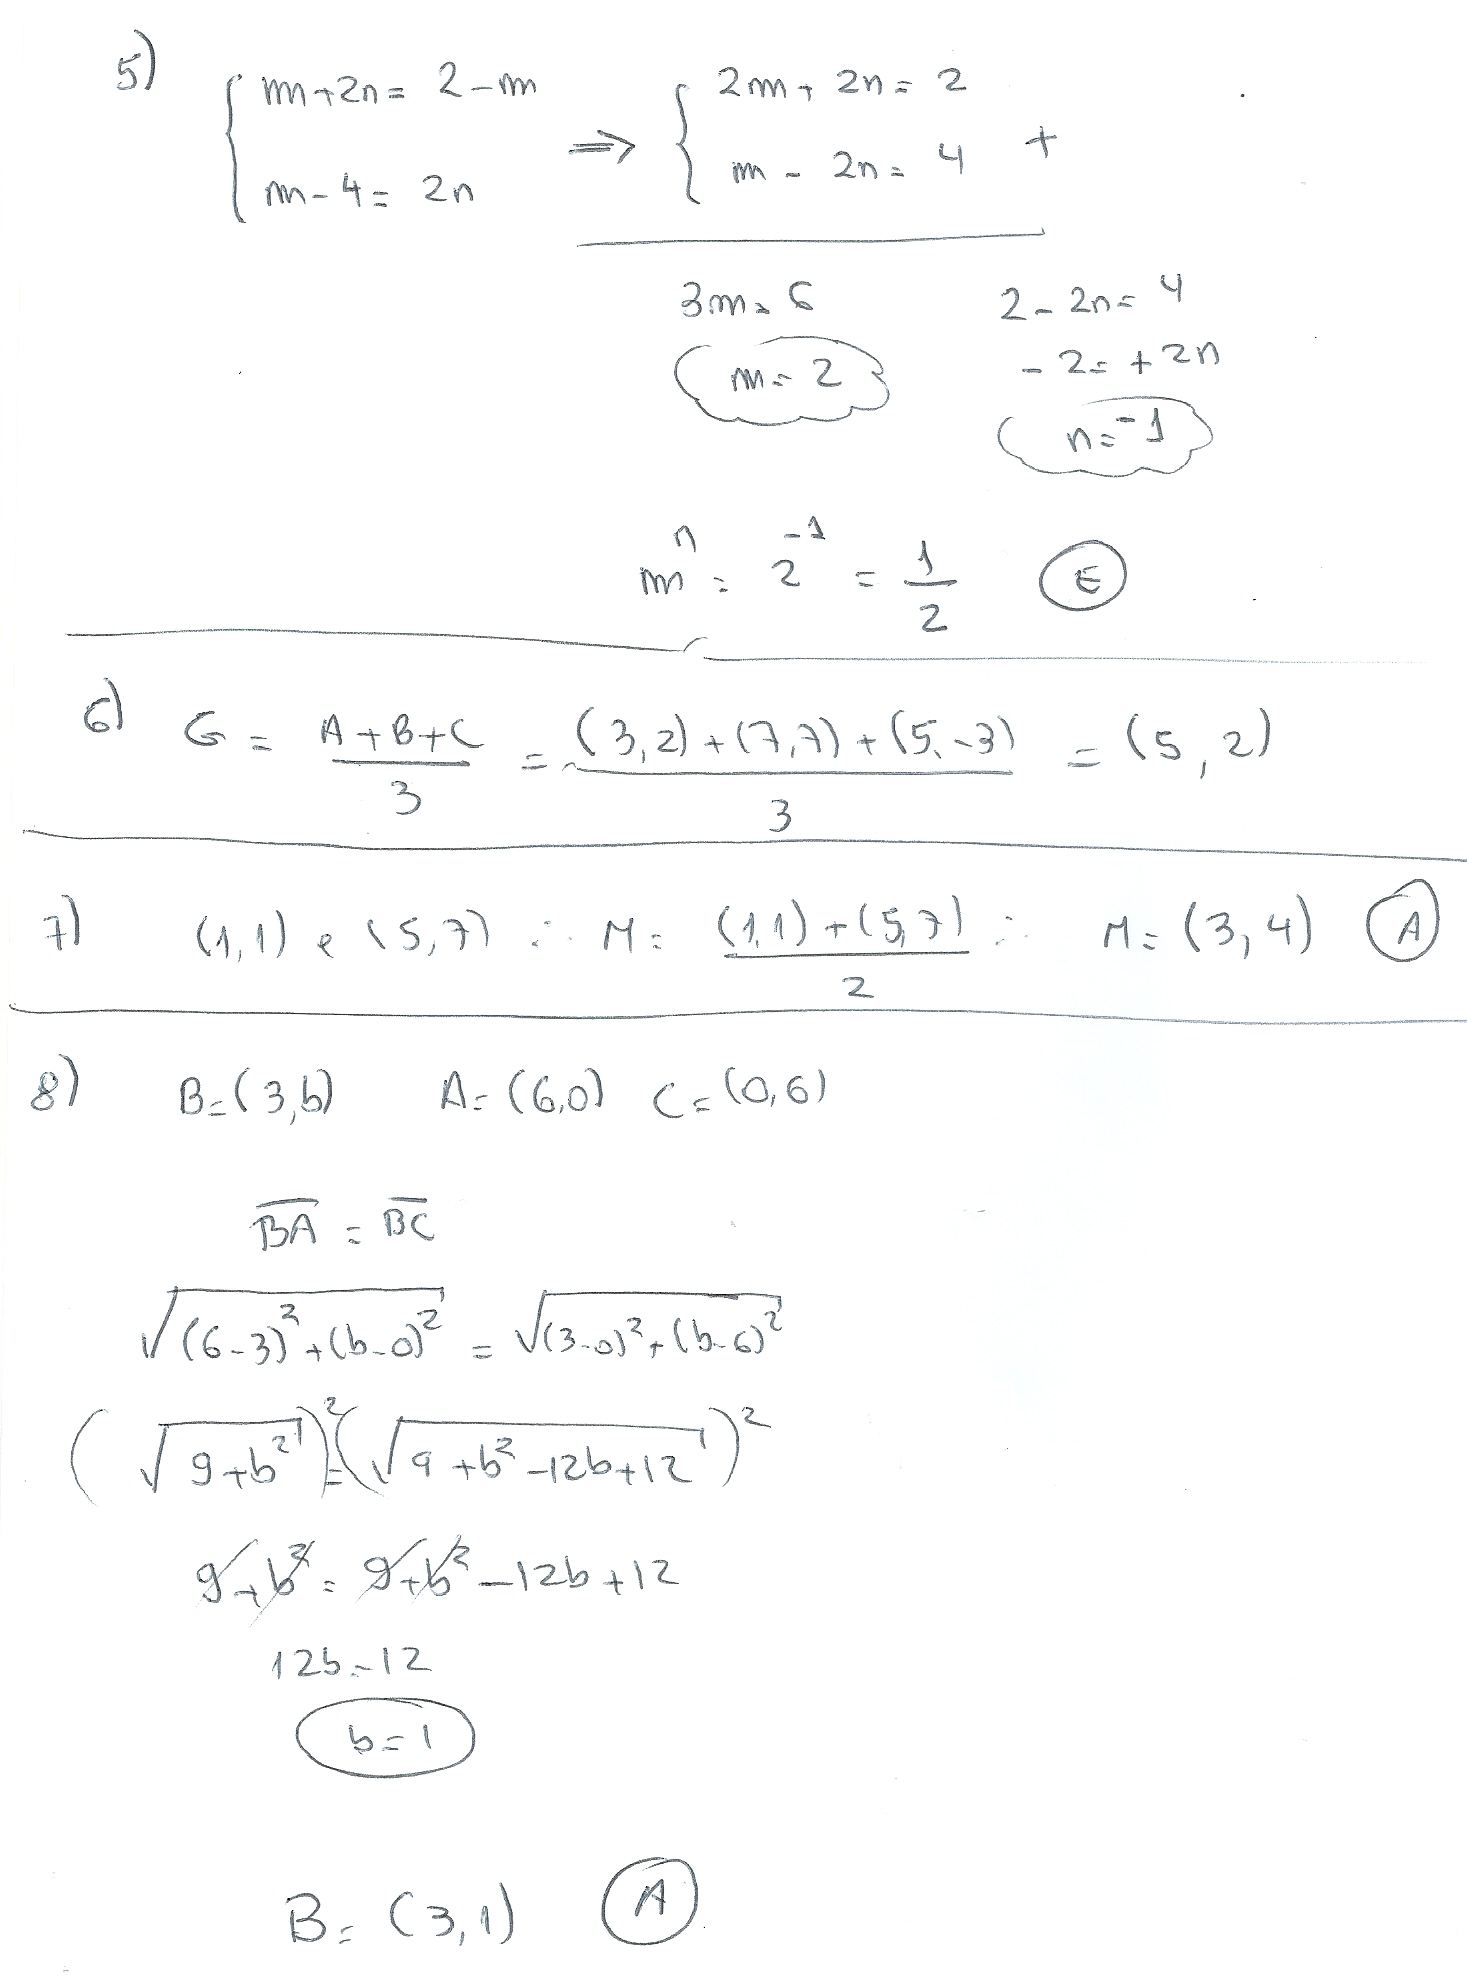 5)
m+2n = 2-m ⇒ 2m + 2n = 2
m-4 = 2n m - 2n = 4 +
3m = 6 2 - 2n = 4
m = 2 - 2 = + 2n
n = -1
m^n = 2^-1 = 1/2 E
6) G = (A+B+C)/3 = ((3,2)+(7,7)+(5,-3))/3 = (5,2)
7) (1,1) e (5,7) ∴ M = ((1,1)+(5,7))/2 ∴ M = (3,4) A
8) B=(3,b) A=(6,0) C=(0,6)
BA = BC
√((6-3)²+(b-0)²) = √((3-0)²+(b-6)²)
(√(9+b²))² = (√(9+b²-12b+12))²
9+b² = 9+b²-12b+12
12b=12
b=1
B=(3,1) A